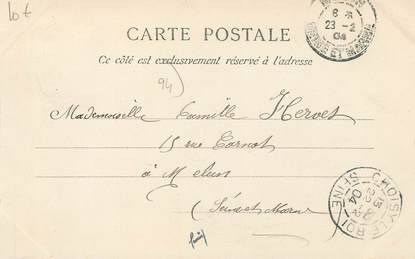 10 €
8
23-2
04
SEINE ET MARNE
CARTE POSTALE
Ce côté est exclusivement réservé à l'adresse
94)
Mademoiselle Camille Hervet
15 rue Carnot
à Melun
(Seine et Marne
CHOISY-LE-ROI
22
04
SEINE